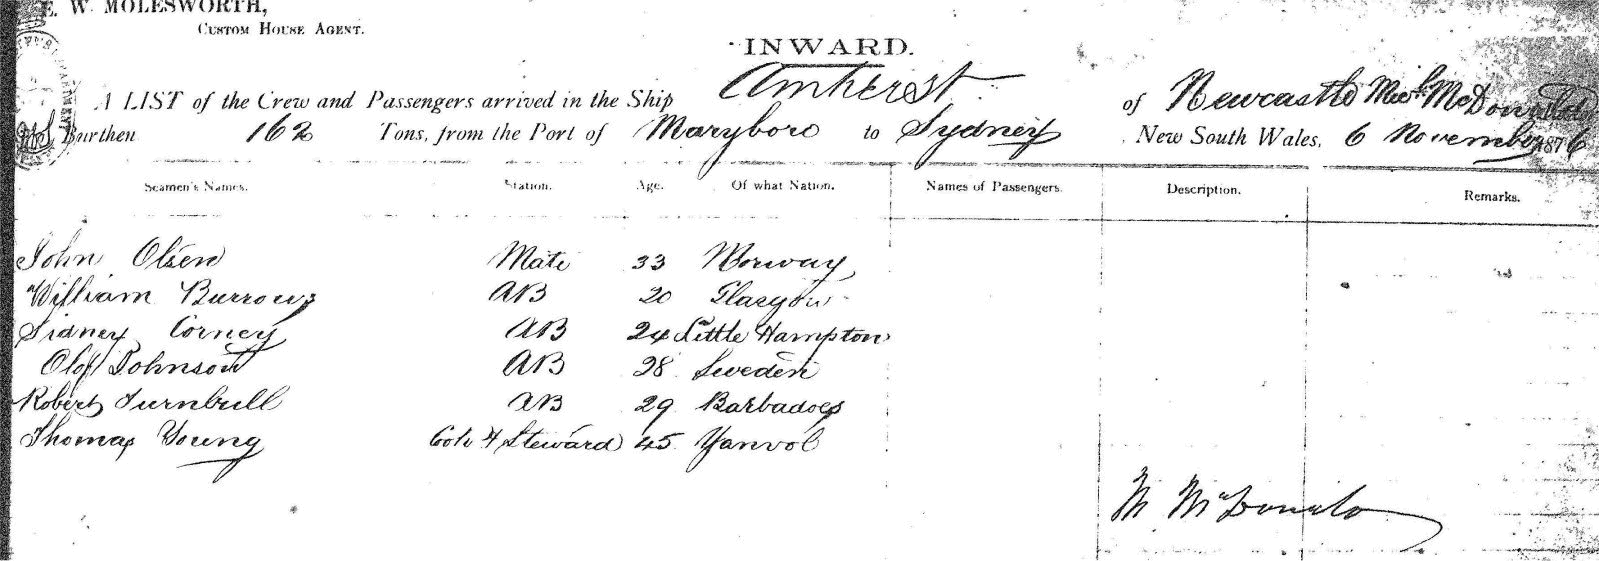 E. W. MOLESWORTH,
CUSTOM HOUSE AGENT.
INWARD.
A LIST of the Crew and Passengers arrived in the Ship Amherst of Newcastle Mich McDonald
Burthen 162 Tons, from the Port of Maryboro to Sydney New South Wales, 6 November 1876
Seamen's Names. Station. Age. Of what Nation. Names of Passengers. Description. Remarks.
John Olsen Mate 33 Norway
William Burrows AB 20 Glasgow
Sidney Corney AB 24 Little Hampton
Olof Johnson AB 28 Sweden
Robert Turnbull AB 29 Barbadoes
Thomas Young Steward 45 Yanvol
M McDonald